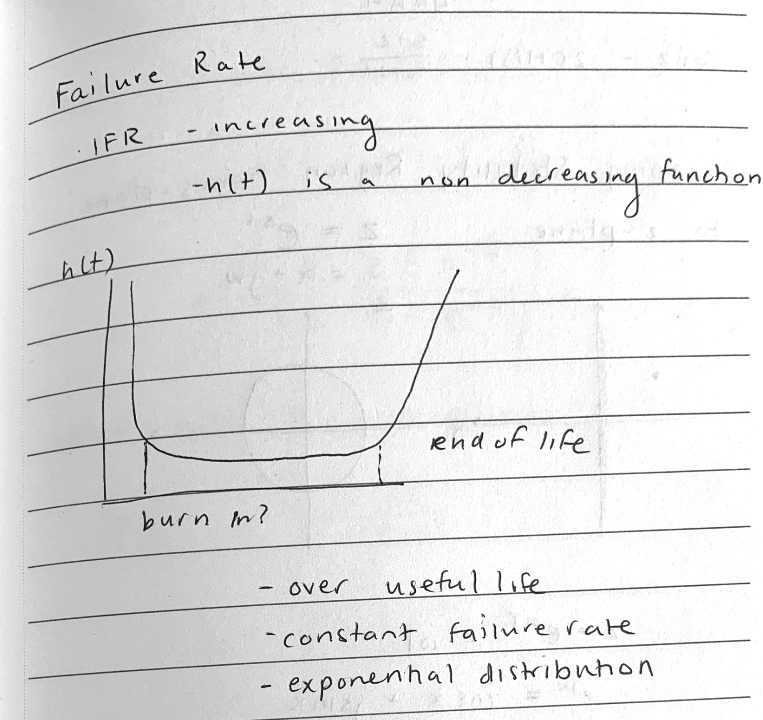 Failure Rate
. IFR - increasing
-h(t) is a non decreasing function
h(t)
end of life
burn in?
- over useful life
- constant failure rate
- exponential distribution